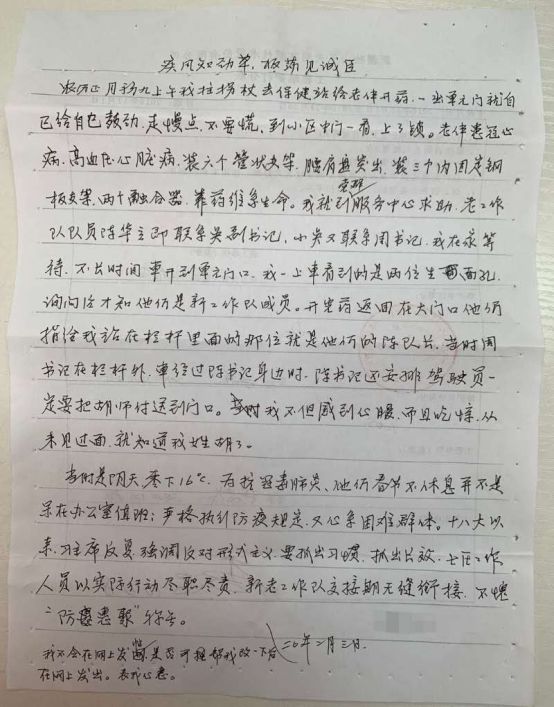 疾风知劲草，板荡见诚臣
农历正月初九上午我拄拐杖去保健站给老伴开药，一出单元门就自
己给自己鼓劲，走慢点，不要慌，到小区中门一看，上了锁。老伴患冠心
病、高血压心脏病，装六个管状支架，腰肩盘突出，装三个内固定钢
板支架，两个融合器，靠药维系生命。我就到服务中心求助，老工作
队队员陈华立即联系吴副书记，小吴又联系周书记，我在家等
待，不长时间车开到单元门口，我一上车看到的是两位生面孔，
询问后才知他们是新工作队成员。开完药返回在大门口他们
指给我站在栏杆里面的那位就是他们的陈队长，当时周
书记在栏杆外，车经过陈书记身边时，陈书记还安排驾驶员一
定要把胡师付送到门口。我不但感到心暖，而且吃惊，从
未见过面，就知道我姓胡了。
当时是阴天零下16℃，为抗冠毒肺炎，他们春节不休息并不是
呆在办公室值班；严格执行防疫规定，又心系困难群体。十八大以
来，习主席反复强调反对形式主义，要抓出习惯，抓出长效，七区工作
人员以实际行动尽职尽责，新老工作队交接期无缝衔接，不愧
“防惠聚”称号。
我不会在网上发，是否可提帮我改一下后
在网上发出。表我心意。
二0年二月三日